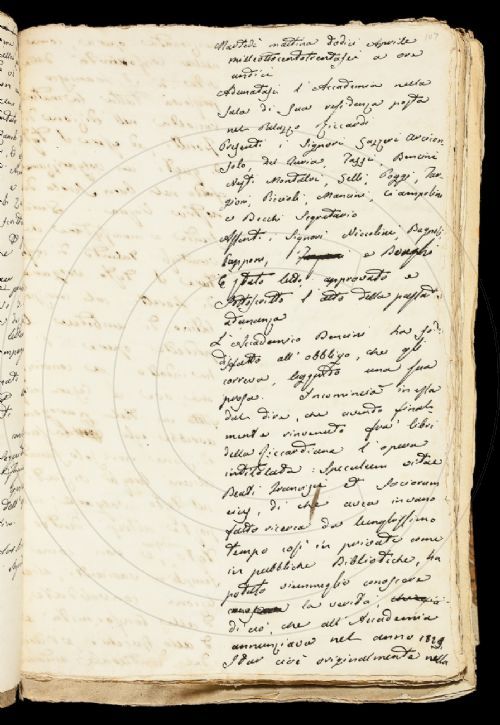 107
Martedì mattina dodici Aprile
milleottocentotrentasei a ore
undici
Adunatasi l'Accademia nella
Sala di Sua residenza posta
nel Palazzo Riccardi
Presenti i Signori Gazzeri Arcicon
solo del Furia, Tassi, Bencini
Nesti Montalvi, Gelli, Poggi, Tar
gioni, Piccioli, Mancini, Ciampolini
e Becchi Segretario
Assenti i Signori Niccolini, Bagnoli
Capponi, e
È stato letto, approvato e
sottoscritto l'atto della passat
adunanza
L'Accademico Bencini ha so
disfatto all'obbligo, che gli
correva, leggendo una sua
prosa. Incomincia in essa
dal dire, che avendo final
mente rinvenuto fra' libri
della Riccardiana l'opera
intitolata: Speculum vitae
Beati Francisci et Sociorum
eius, di che avea invano
fatto ricerca da lunghissimo
tempo così in private come
in pubbliche Biblioteche, ha
potuto viemmeglio conoscere
la verità
di ciò, che all'Accademia
annunziava nel anno
cioè originalmente nella